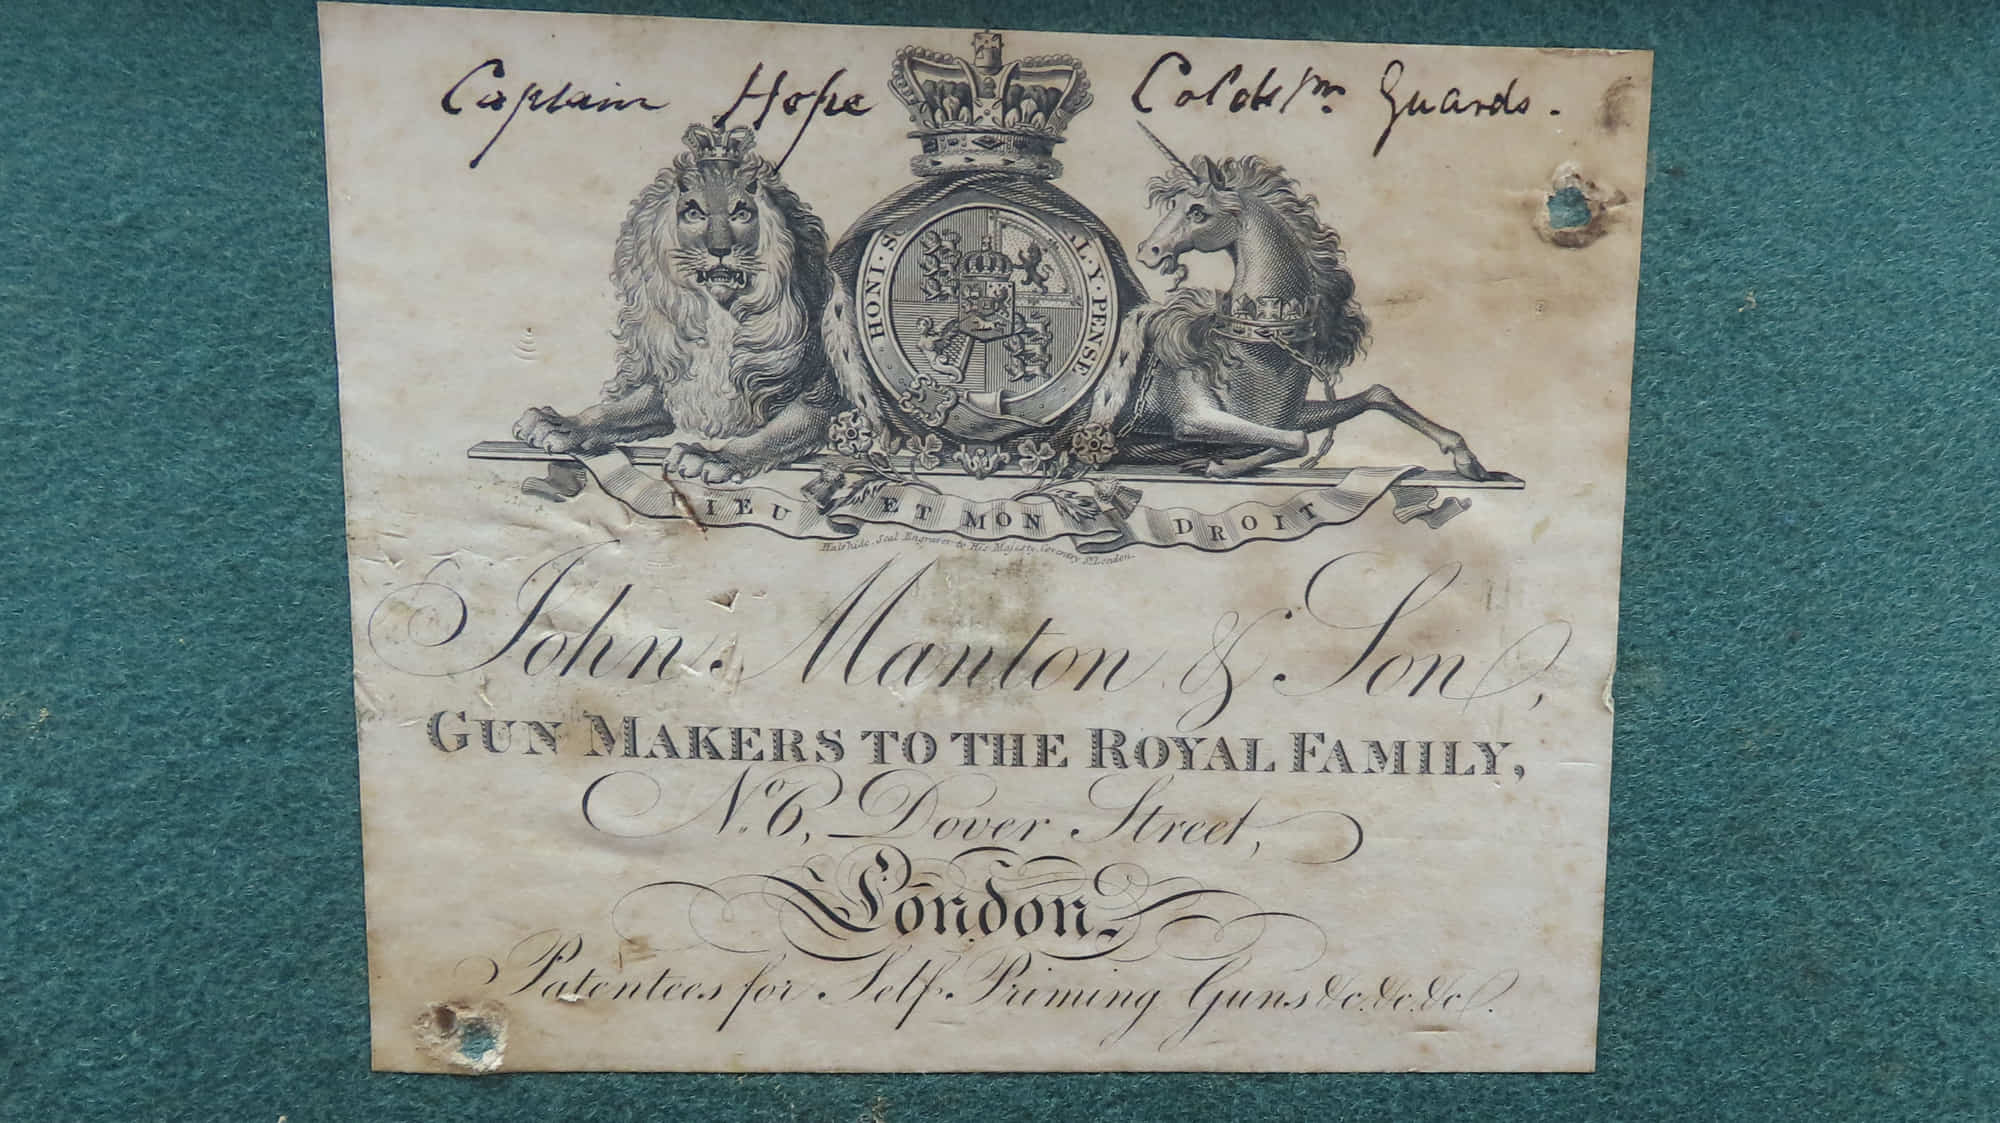 Captain Hope Coldstm Guards.
HONI · S AL · Y · PENSE
DIEU ET MON DROIT
Halfhide, Seal Engraver to His Majesty, Coventry St. London.
John Manton & Son,
GUN MAKERS TO THE ROYAL FAMILY,
No. 6, Dover Street,
London.
Patentees for Self-Priming Guns &c. &c. &c.